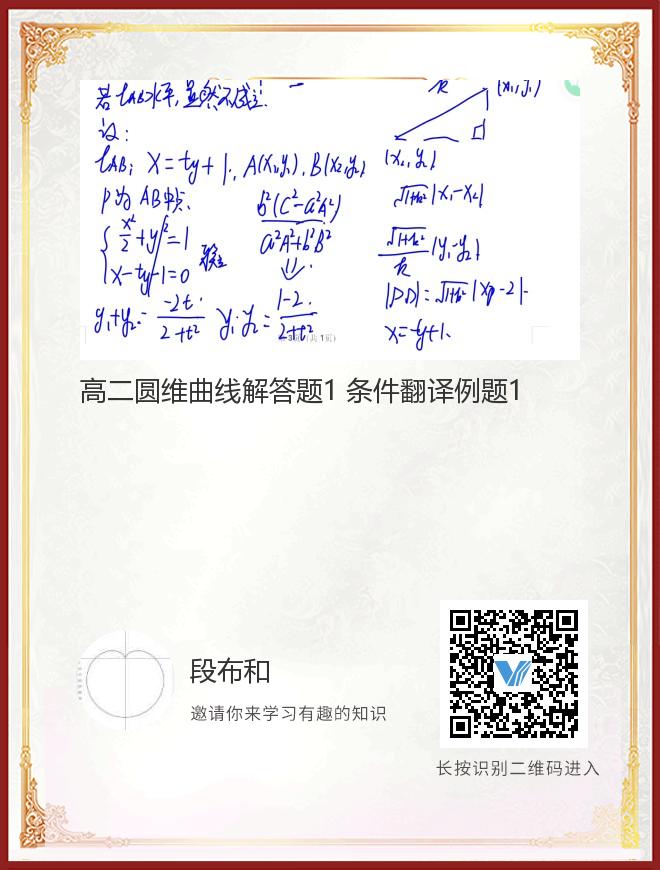 若lAB水平,显然不成立.
设:
lAB: x=ty+1, A(x1,y1), B(x2,y2)
P为AB中点.
x²/2+y²=1
x-ty-1=0
联立
y1+y2=-2t/2+t² y1·y2=1-2/2+t²
b²(c²-a²A²)/a²A²+b²B²
(x1,y1)
(x2,y2)
√1+k²|x1-x2|
√1+k²/k|y1-y2|
|PD|=√1+k²|xp-2|
x=ty+1
高二圆维曲线解答题1 条件翻译例题1
段布和
邀请你来学习有趣的知识
长按识别二维码进入